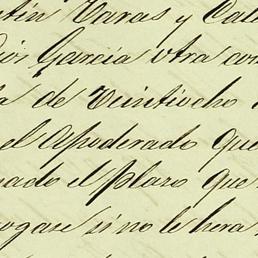 tin Varas y Cal
Dios Garcia otra con
a de veintiocho
el Apoderado que
nado el plazo que
ogase si no le hera